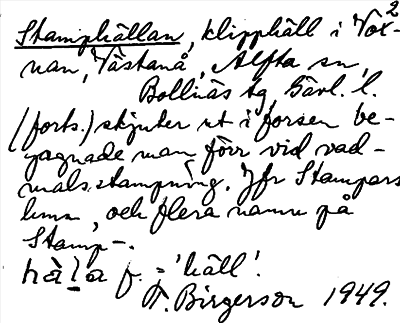 2
Stamphällan, klipphäll i Vox-
nan, Västanå, Alfta sn,
Bollnäs tg, Gävl. l.
(forts.) skjuter ut i forsen be-
gagnade man förr vid vad-
malsstampning. Jfr Stampars
, och flera namn på
Stamp-.
hàla f. = 'häll'.
F. Birgerson 1949.